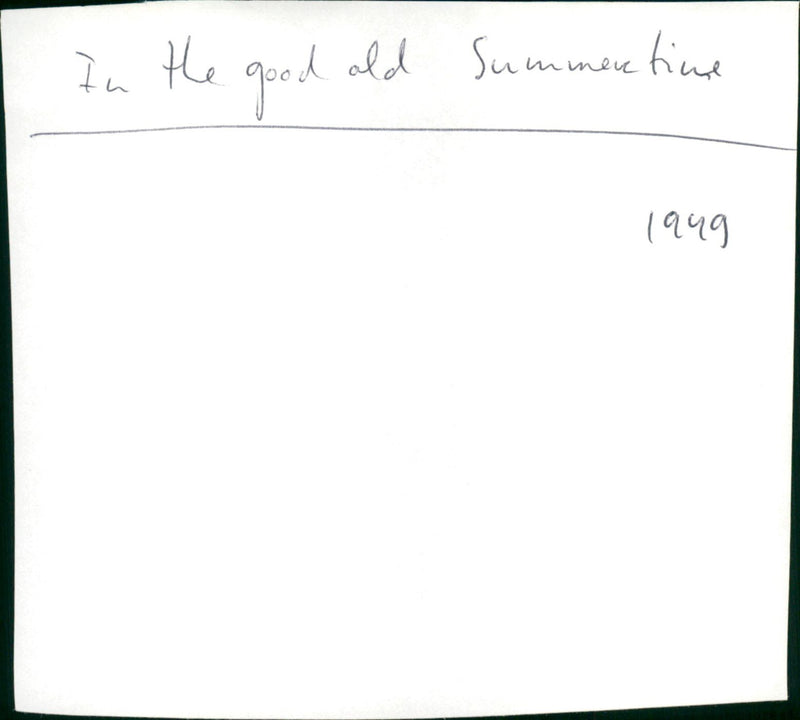 In the good old Summertime
1949